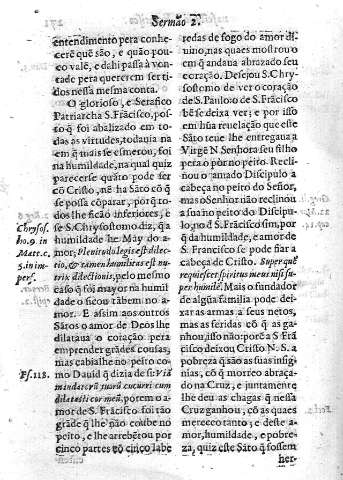 Sermão 2.
entendimento pera conhe-
cerē que são, e quão pou-
co vale, e dahi passa à von-
tade pera quererem ser ti-
dos nessa mesma conta.
O glorioso, e Serafico
Patriarcha S. Frācisco, pos-
to q̃ foi abalizado em to-
das as virtudes, todauia na
em q̃ mais se esmerou, foi
na humildade, na qual quiz
parecerse quāto pode ser
cō Christo, nē ha Sāto cō q̃
se possa cōparar, porq̃ to-
dos lhe ficāo inferiores, e
se S. Chrysostomo diz, q̃ a
humildade he May do a-
mor; Plenitudo legis est dilec-
tio, & tamen humilitas est nu-
trix dilectionis, pelo mesmo
caso q̃ foi mayor na humil
dade o ficou tābem no a-
mor. E assim aos outros
Sātos o amor de Deos lhe
dilataua o coração pera
emprender grādes cousas,
mas cabialhe no peito co-
mo Dauid q̃ dizia de si: Viā
mandatorū tuorū cucurri cum
dilatasti cor meū, porem o a-
mor de S. Frācisco foi tāo
grāde q̃ lhe não coube no
peito, e lhe arrebētou por
cinco partes cō cinco labe
Chrysos.
ho. 9. in
Matt. c.
5. in im-
perf.
Ps. 118.
redas de fogo do amor di-
uino, nas quaes mostrou o
em q̃ andaua abrazado seu
coração. Desejou S. Chry-
sostomo de ver o coração
de S. Paulo: o de S. Frācisco
bē se deixa ver; e por isso
em hūa reuelação que este
Sāto teue lhe entregaua a
Virgē N. Senhora seu filho
pera o pòr no peito. Recli-
nou o amado Discipulo a
cabeça no peito do Señor,
mas o Señor não reclinou
a sua no peito do Discipu-
lo, no de S. Frācisco si, por
q̃ da humildade, e amor de
S. Francisco se pode fiar a
cabeça de Christo. Super quē
requiescet spiritus meus nisi su-
per humilē. Mais o fundador
de algūa familia pode dei-
xar as armas a seus netos,
mas as feridas cō q̃ as ga-
nhou, isso não: porē a S. Frā
cisco deixou Christo N. S. a
pobreza q̃ são as suas insig-
nias, cō q̃ morreo abraça-
do na Cruz, e juntamente
lhe deu as chagas q̃ nessa
Cruz ganhou, cō as quaes
mereceo tanto; e deste a-
mor, humildade, e pobre-
za, quiz este Sāto q̃ fossem
her-